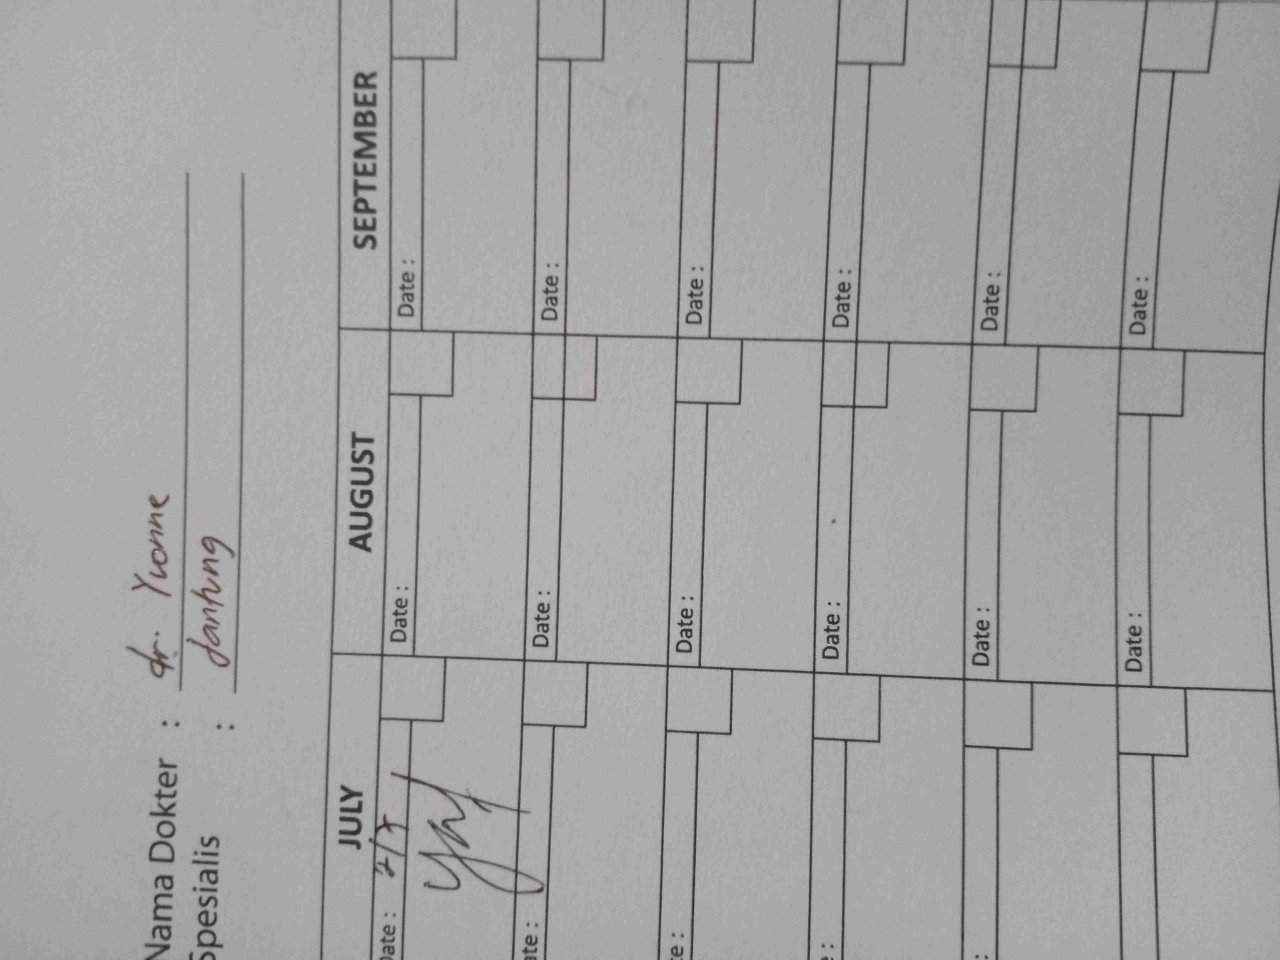 Nama Dokter : dr. Yvonne
Spesialis : Jantung
JULY AUGUST SEPTEMBER
Date : 2/7 Date : Date :
ate : Date : Date :
te : Date : Date :
: Date : Date :
: Date : Date :
Date : Date :